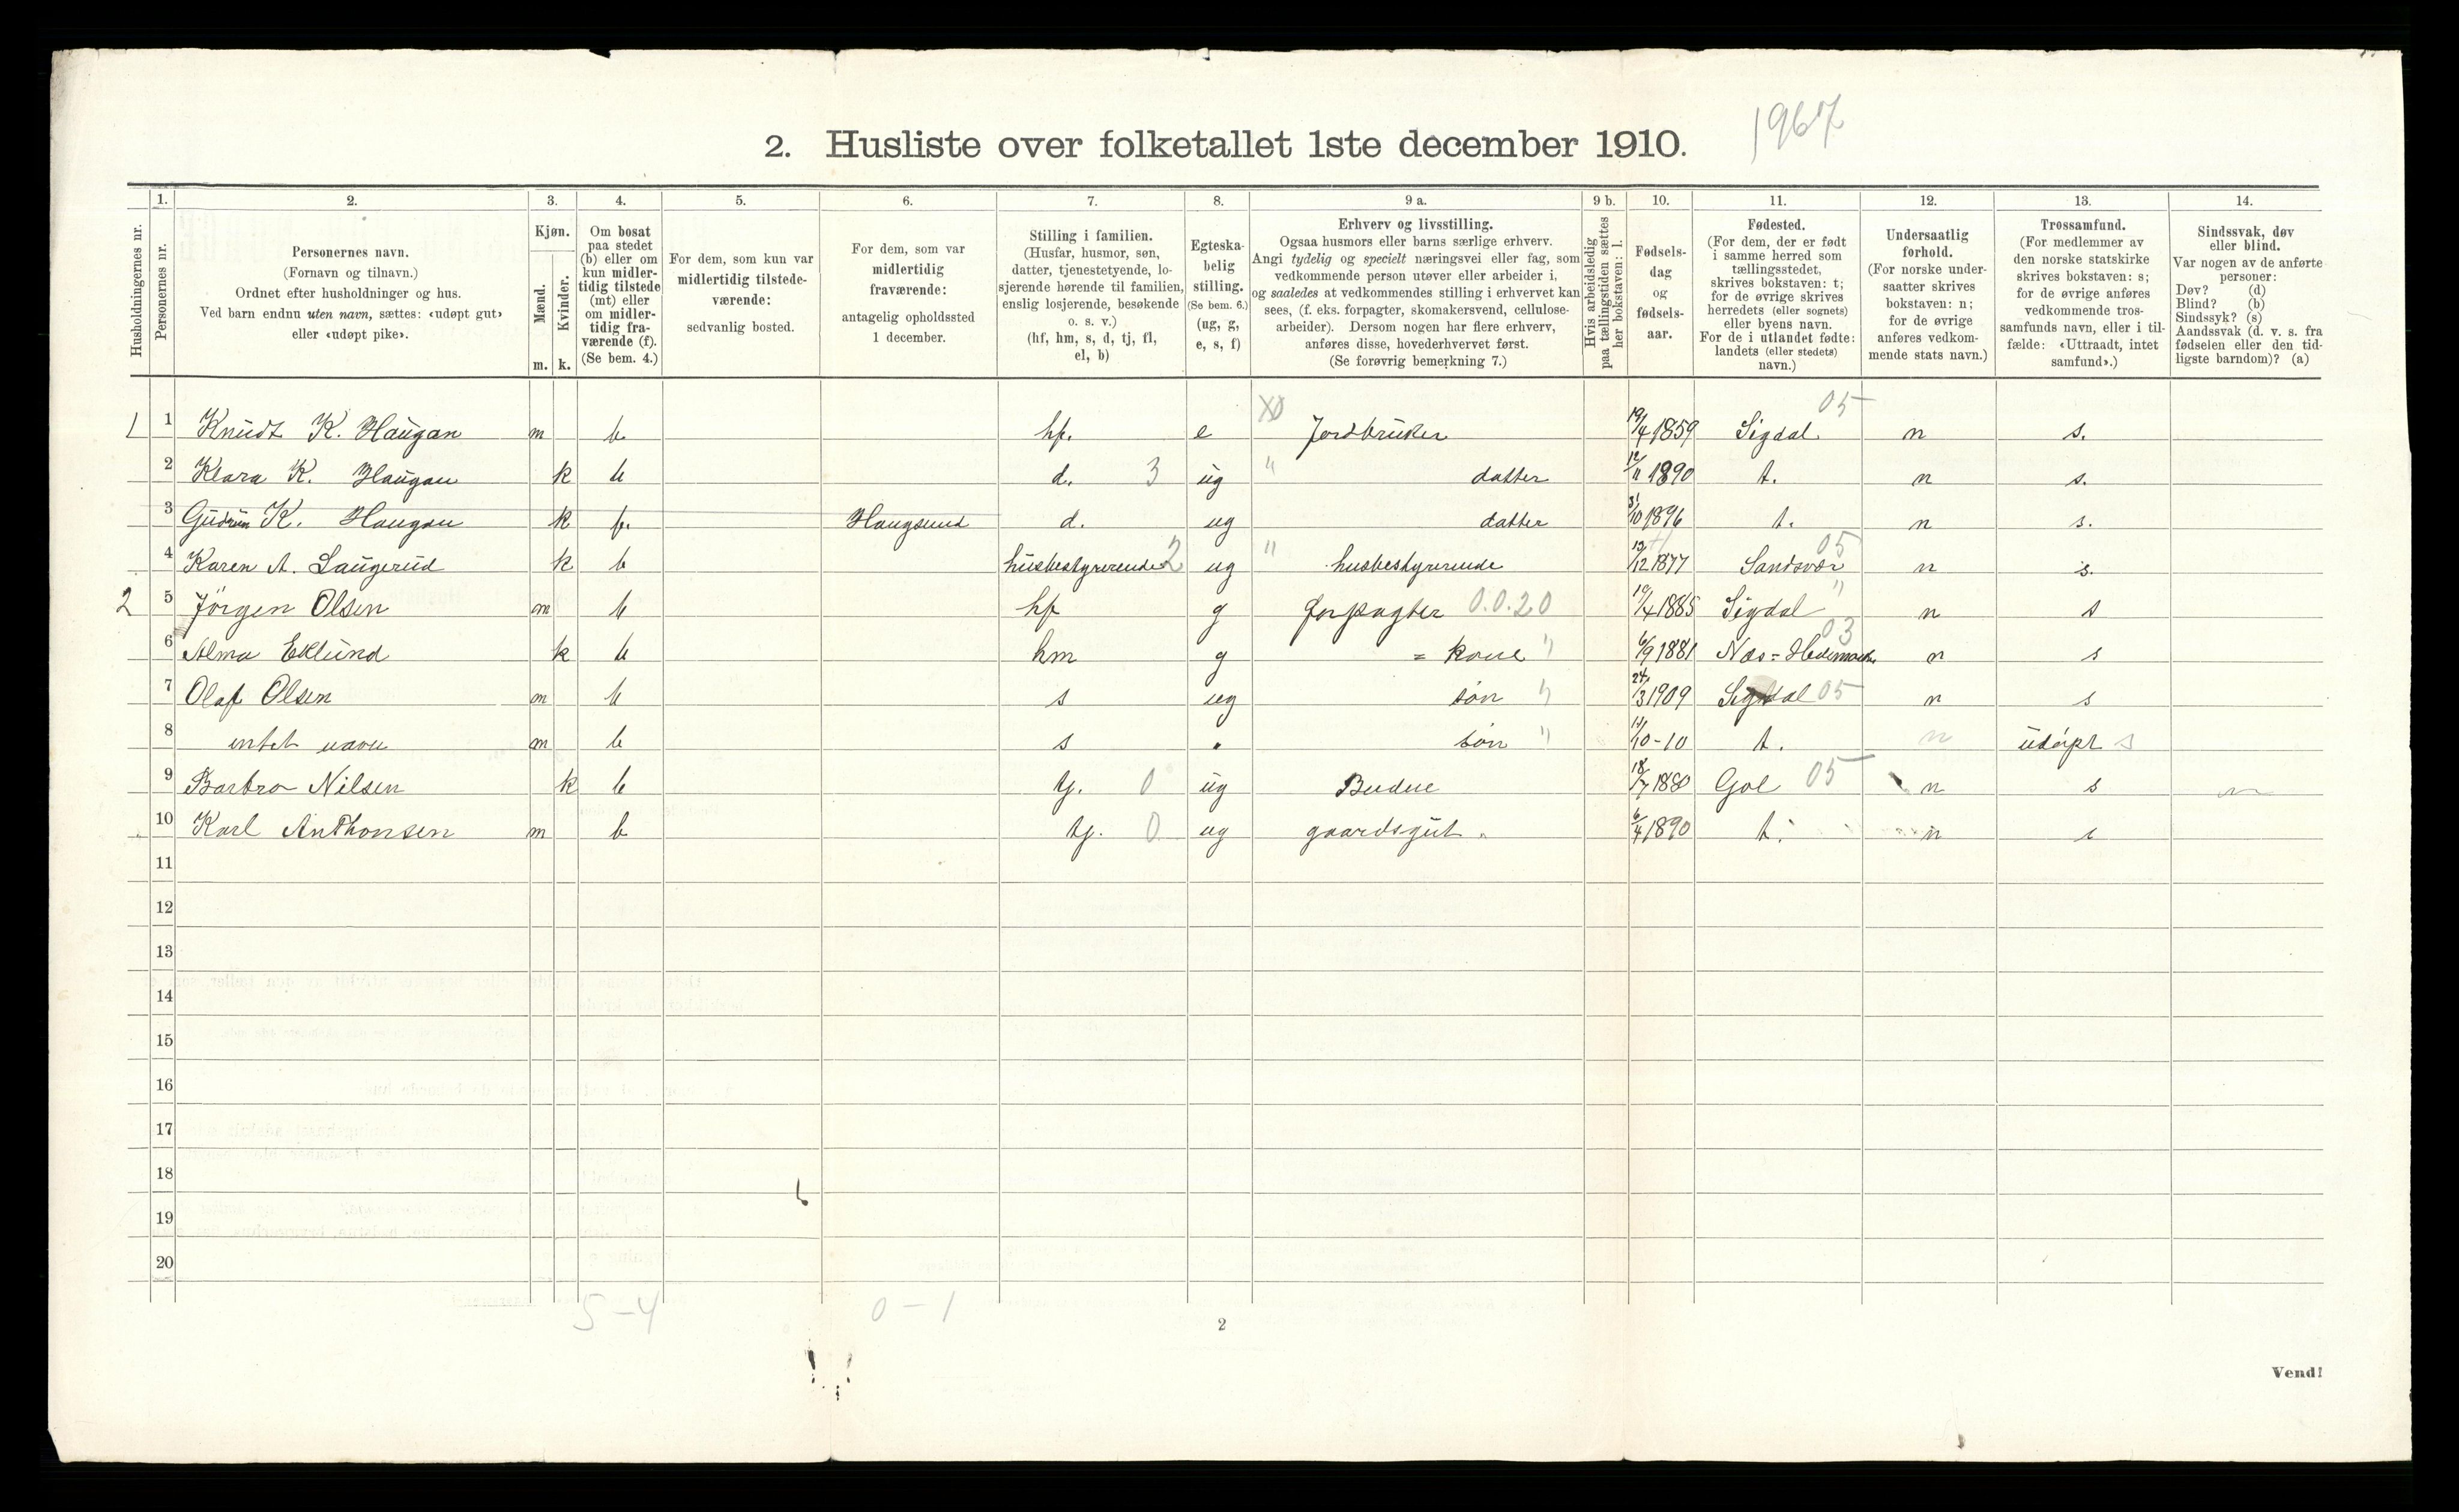 1967
2. Husliste over folketallet 1ste december 1910.
1. 2. 3. 4. 5. 6. 7. 8. 9 a. 9 b. 10. 11. 12. 13. 14.
Husholdningernes nr.
Personernes nr.
Personernes navn.
(Fornavn og tilnavn.)
Ordnet efter husholdninger og hus.
Ved barn endnu uten navn, sættes: «udøpt gut»
eller «udøpt pike».
Kjøn.
Mænd.
Kvinder.
m. k.
Om bosat
paa stedet
(b) eller om
kun midler-
tidig tilstede
(mt) eller
om midler-
tidig fra-
værende (f).
(Se bem. 4.)
For dem, som kun var
midlertidig tilstede-
værende:
sedvanlig bosted.
For dem, som var
midlertidig
fraværende:
antagelig opholdssted
1 december.
Stilling i familien.
(Husfar, husmor, søn,
datter, tjenestetyende, lo-
sjerende hørende til familien,
enslig losjerende, besøkende
o. s. v.)
(hf, hm, s, d, tj, fl,
el, b)
Egteska-
belig
stilling.
(Se bem. 6.)
(ug, g,
e, s, f)
Erhverv og livsstilling.
Ogsaa husmors eller barns særlige erhverv.
Angi tydelig og specielt næringsvei eller fag, som
vedkommende person utøver eller arbeider i,
og saaledes at vedkommendes stilling i erhvervet kan
sees, (f. eks. forpagter, skomakersvend, cellulose-
arbeider). Dersom nogen har flere erhverv,
anføres disse, hovederhvervet først.
(Se forøvrig bemerkning 7.)
Hvis arbeidsledig
paa tællingstiden sættes
her bokstaven: l.
Fødsels-
dag
og
fødsels-
aar.
Fødested.
(For dem, der er født
i samme herred som
tællingsstedet,
skrives bokstaven: t;
for de øvrige skrives
herredets (eller sognets)
eller byens navn.
For de i utlandet fødte:
landets (eller stedets)
navn.)
Undersaatlig
forhold.
(For norske under-
saatter skrives
bokstaven: n;
for de øvrige
anføres vedkom-
mende stats navn.)
Trossamfund.
(For medlemmer av
den norske statskirke
skrives bokstaven: s;
for de øvrige anføres
vedkommende tros-
samfunds navn, eller i til-
fælde: «Uttraadt, intet
samfund».)
Sindssvak, døv
eller blind.
Var nogen av de anførte
personer:
Døv? (d)
Blind? (b)
Sindssyk? (s)
Aandssvak (d. v. s. fra
fødselen eller den tid-
ligste barndom)? (a)
1 1 Knudt K. Haugan m b. hf. e X0 Jordbruker 19/4 1859 Sigdal 05 n s.
2 Klara K. Haugan k b d. 3 ug " datter 12/11 1890 t. n s.
3 Gudrun K. Haugan k f. Haugsund d. ug datter 31/10 1896 t. n s.
4 Karen A. Laugerud k b husbestyrerende 2 ug " husbestyrerinde 13/12 1877 Sandsvær 05 n s.
2 5 Jörgen Olsen m b hf g forpagter 0.0.20 19/4 1885 Sigdal " n s
6 Alma Eklund k b hm g = kone " 6/9 1881 Næs = Hedemarken 03 n s
7 Olaf Olsen m b s ug sön " 24/3 1909 Sigdal 05 n s
8 intet navn m b s • sön " 11/10-10 t. n udöpt s
9 Barbro Nilsen k b tj. 0 ug Budeie 18/7 1880 Gol 05 n s
10 Karl Anthonsen m b tj. 0 ug gaardsgut 6/4 1890 t. n s
11
12
13
14
15
16
17
18
19
20
5-4 0-1
2
Vend!